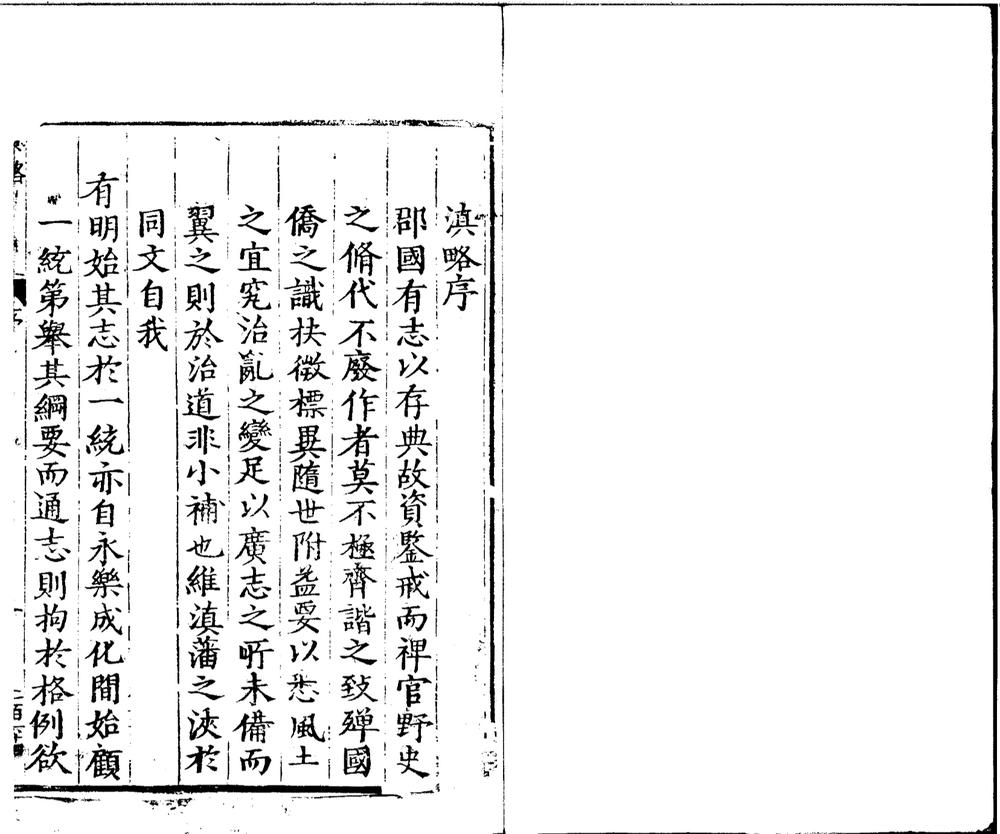 滇略序
郡國有志以存典故資鑒戒而裨官野史
之脩代不廢作者莫不極齊諧之致殫國
僑之識抉徵標異隨世附益要以悉風土
之宜究治亂之變足以廣志之所未備而
翼之則於治道非小補也維滇藩之浹於
同文自我
有明始其志於一統亦自永樂成化間始顧
一統第舉其綱要而通志則拘於格例欲